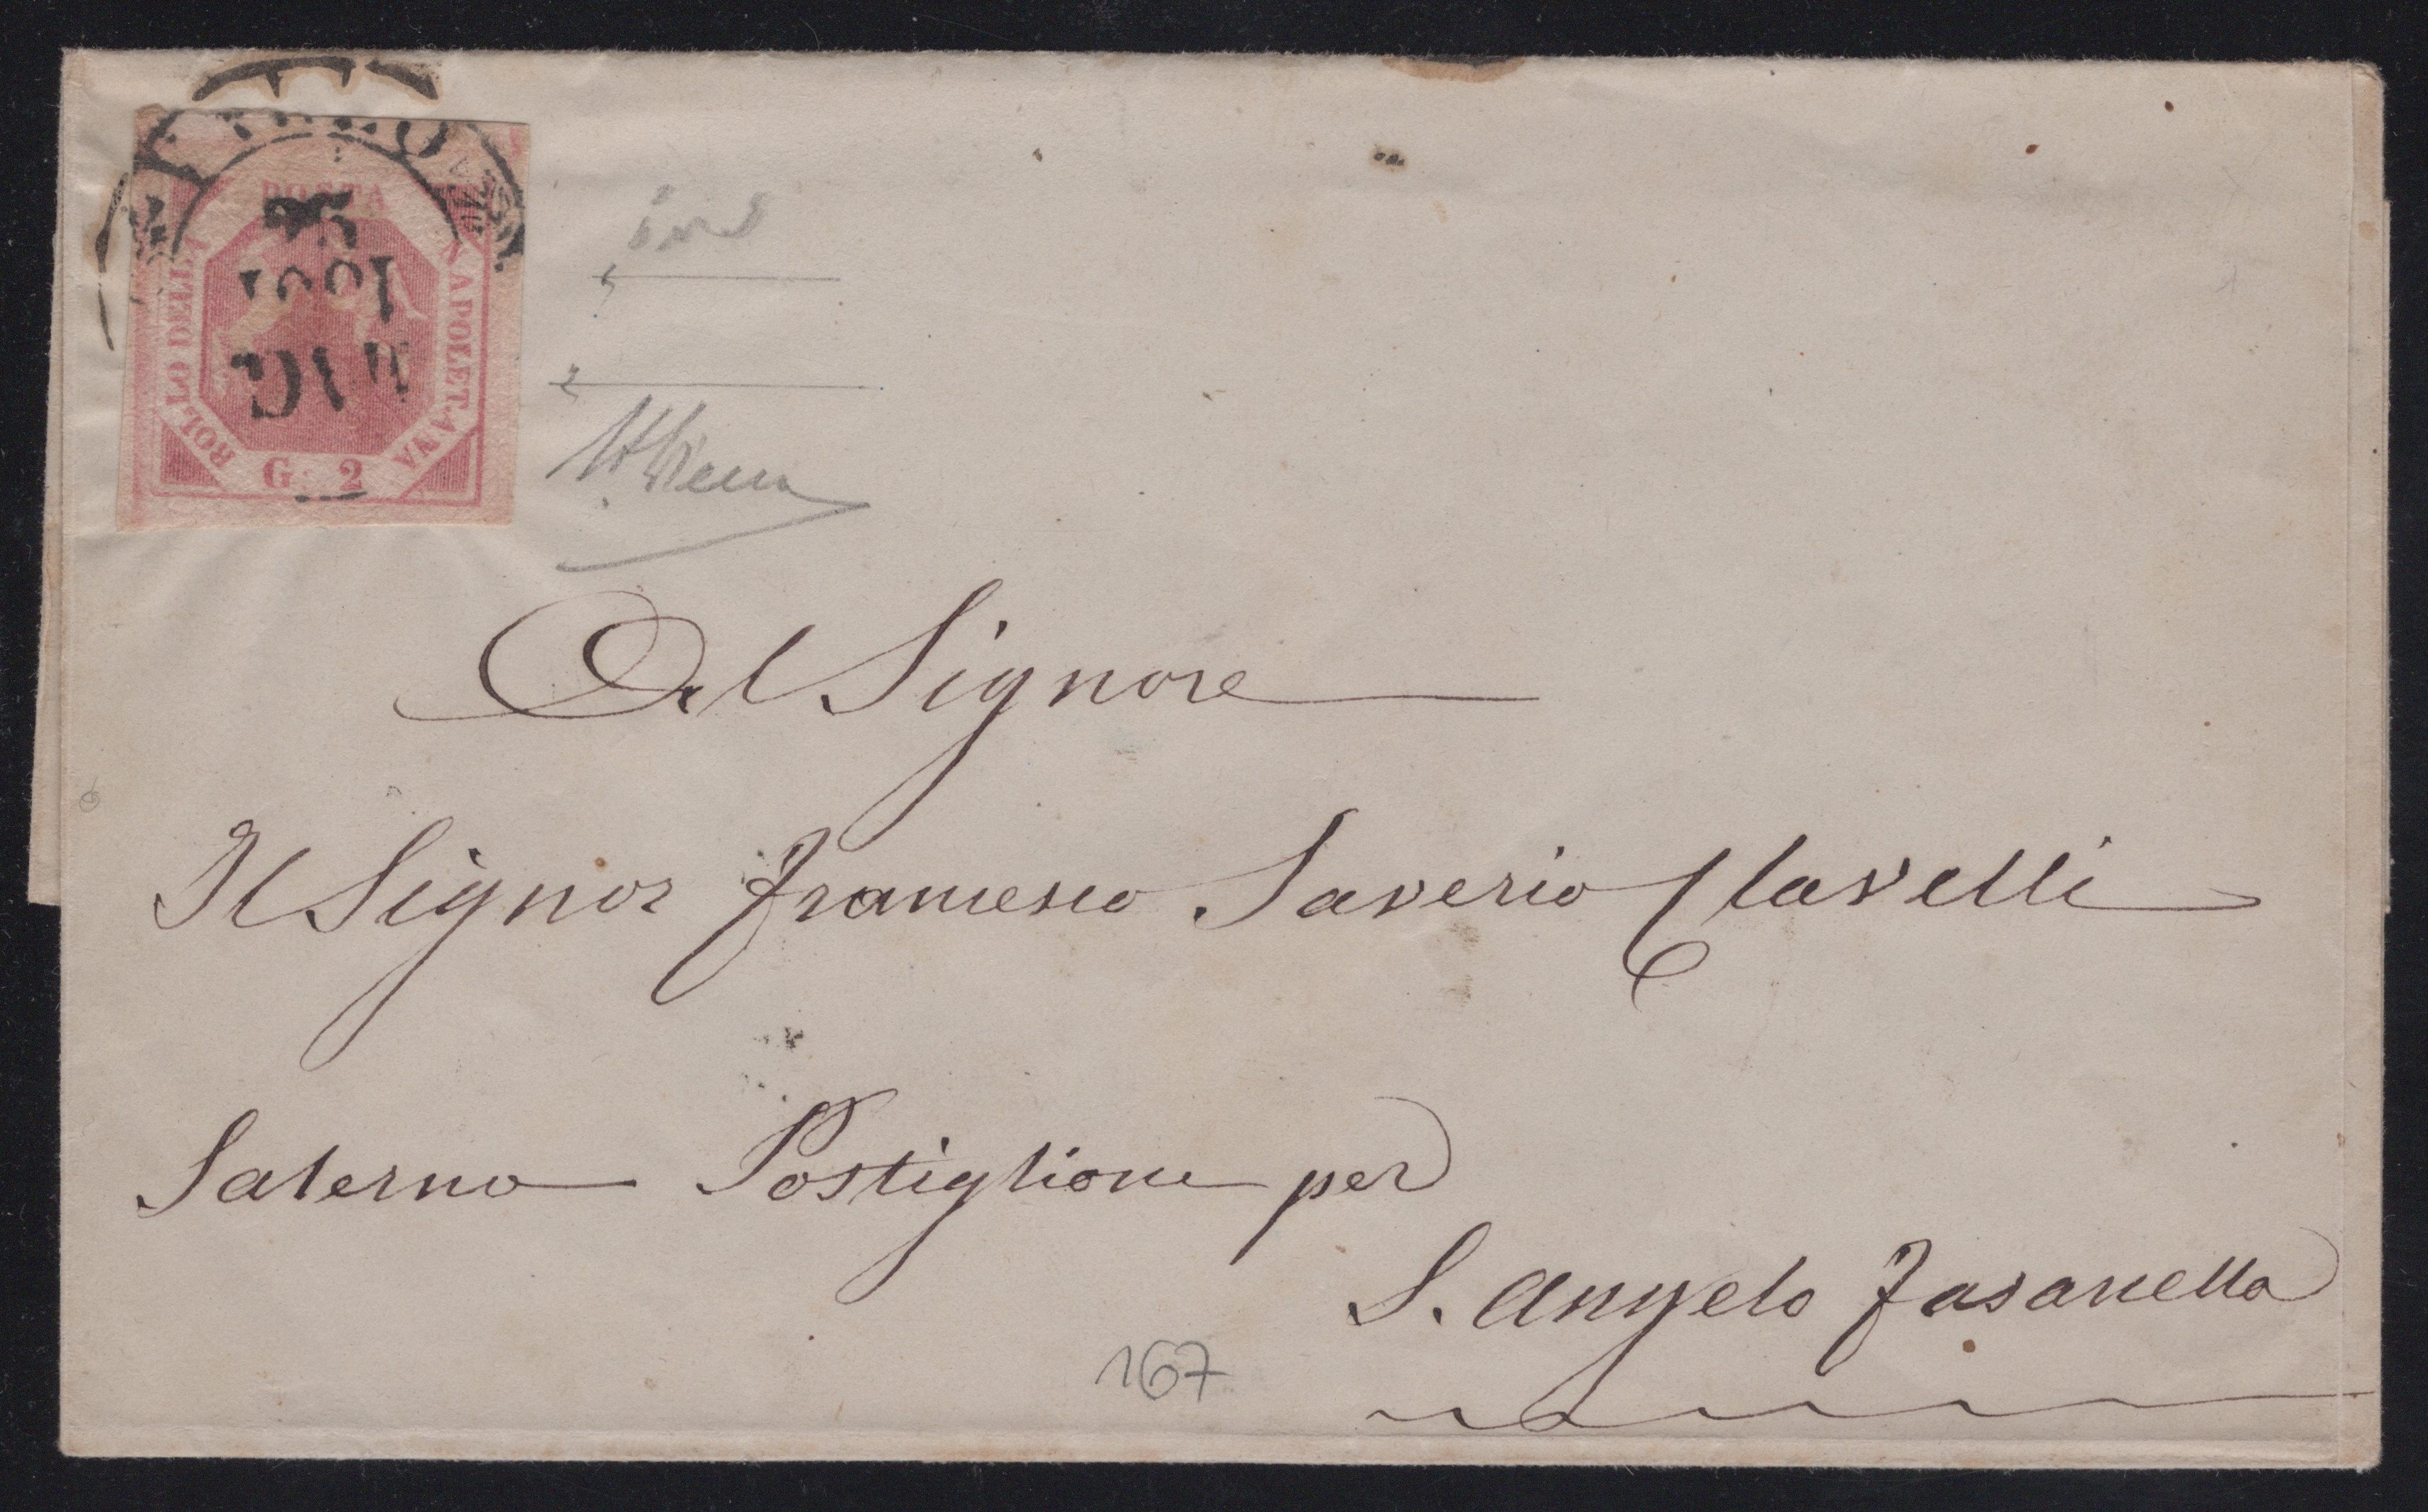 POSTA
BOLLO DELLA
NAPOLETANA
G. 2
26
1861
MAG
Al Signore
Il Signor Francesco Saverio Clavelli
Salerno Postiglione per
S. Angelo Fasanella
167